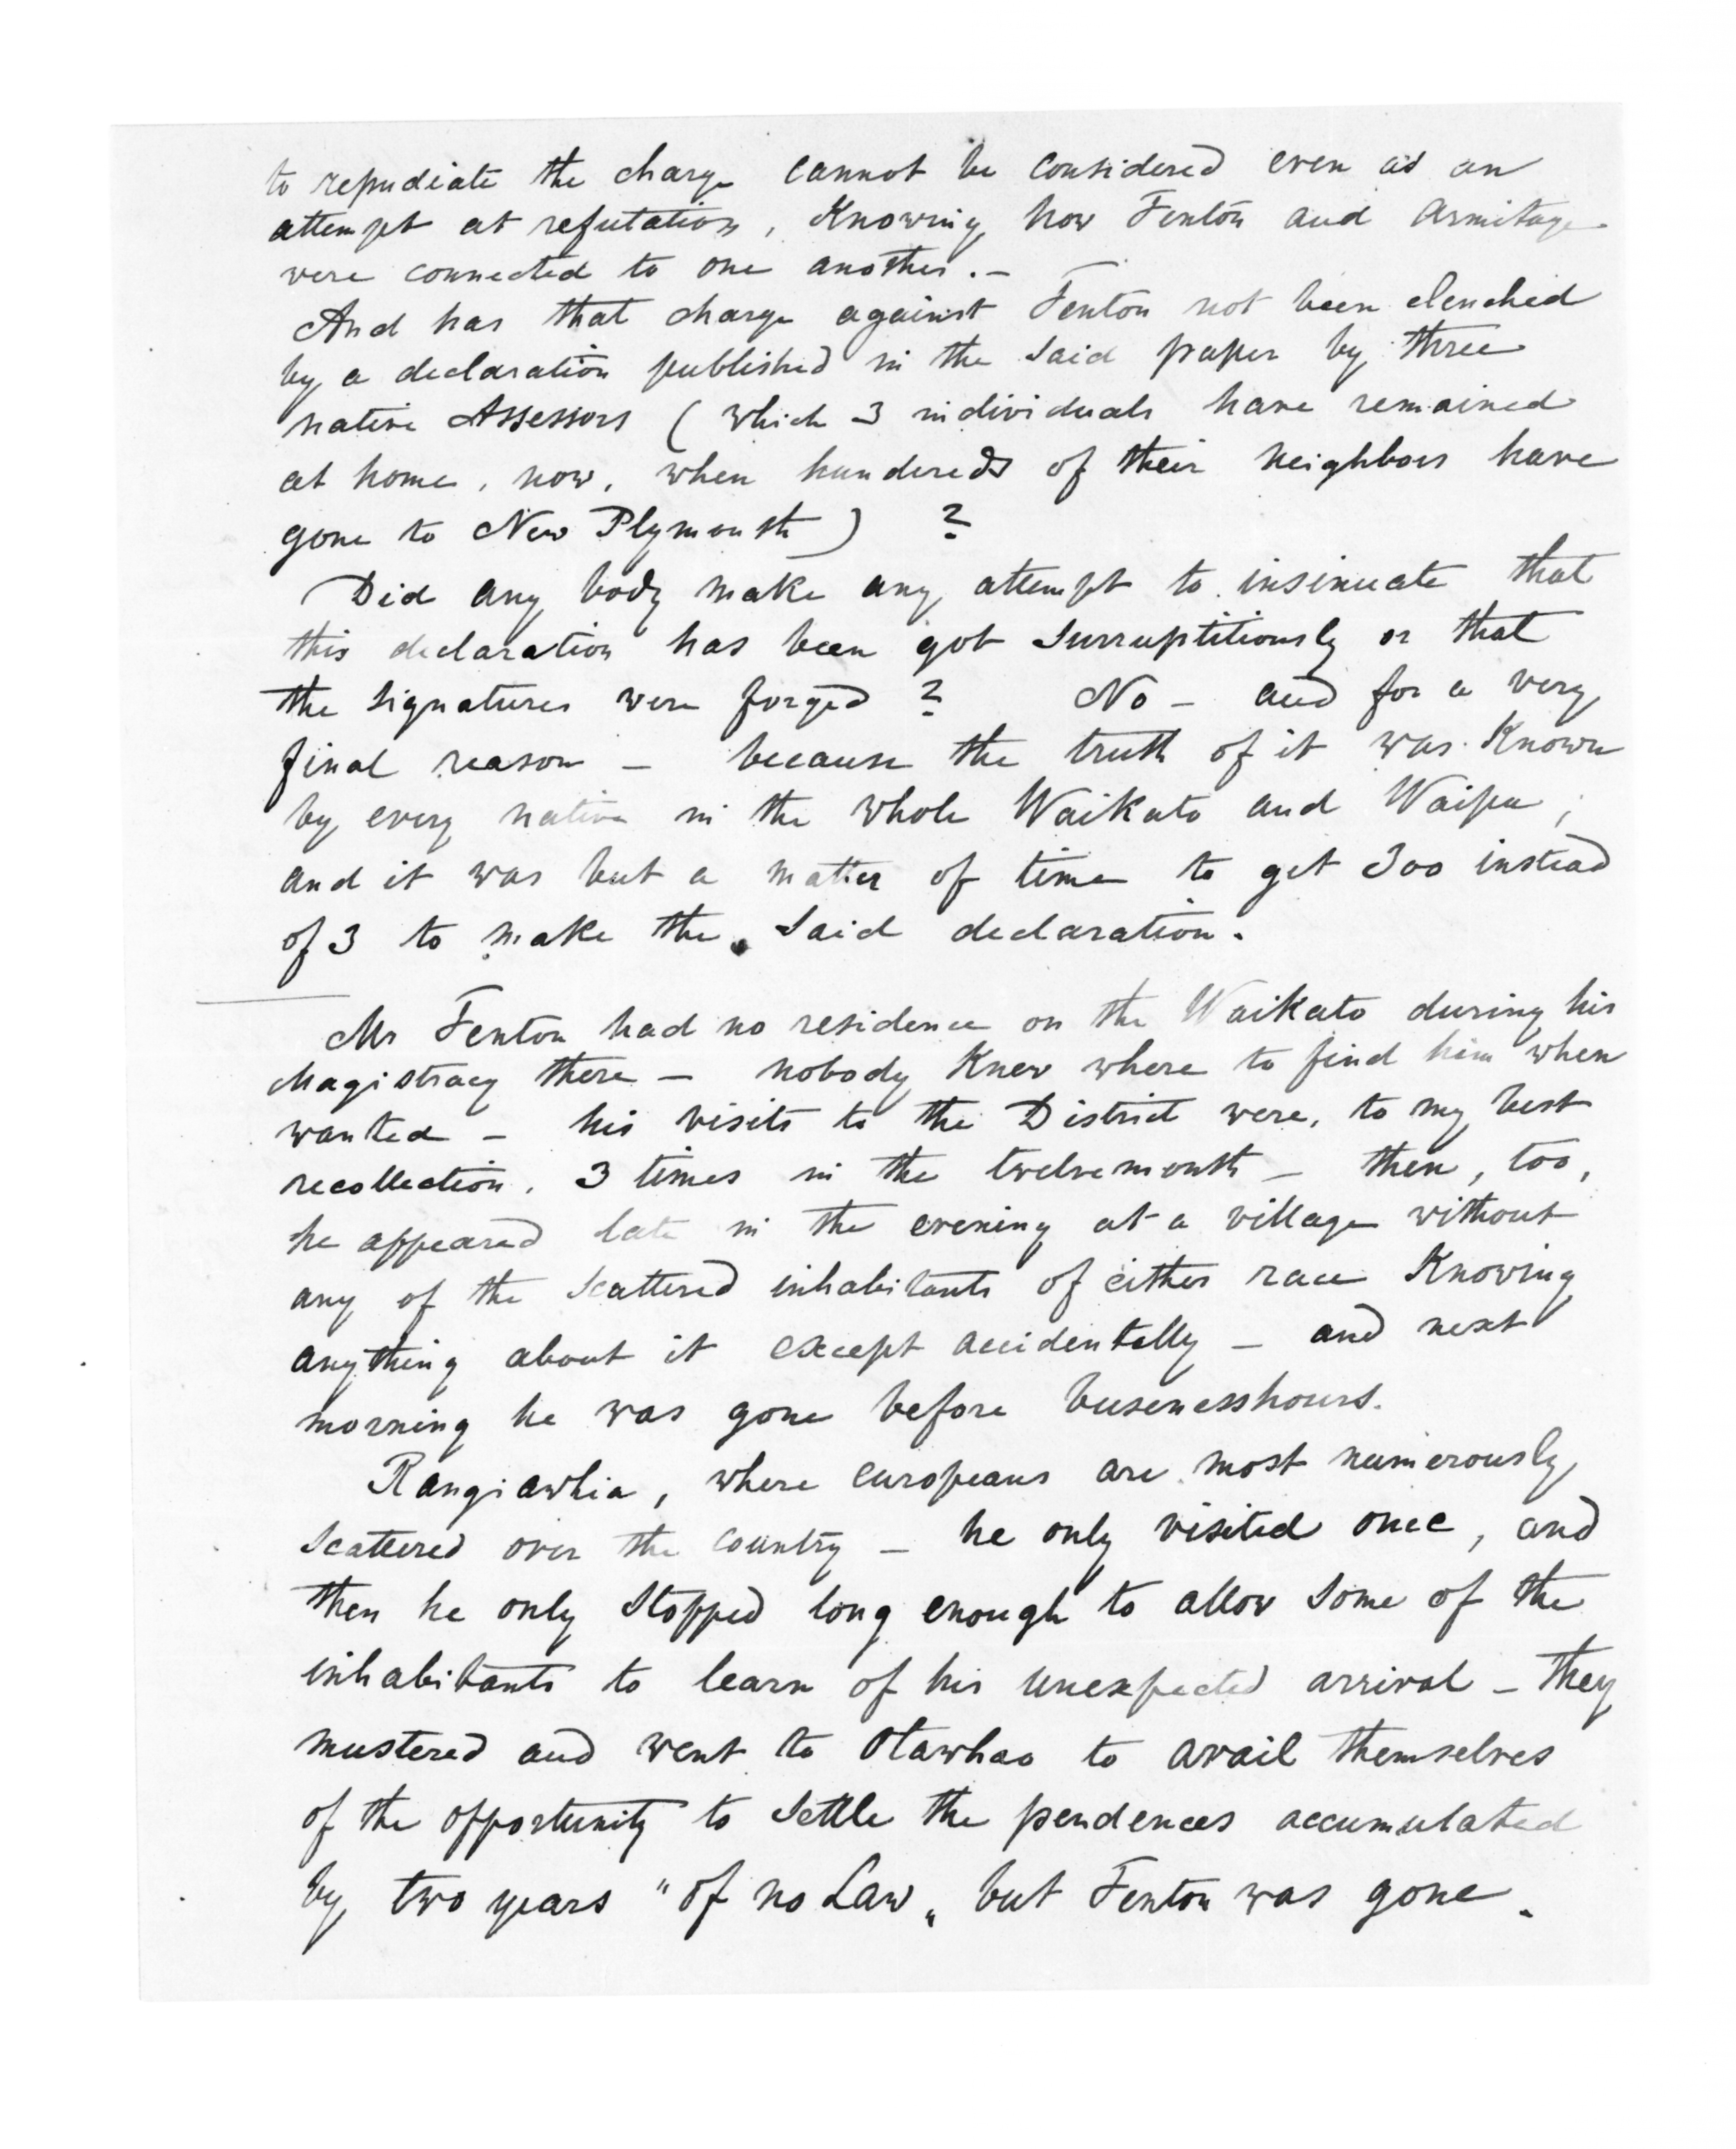 to repudiate the charge cannot be considered even as an
attempt at refutation, Knowing how Fenton and Armitage
were connected to one another. –
And has that charge against Fenton not been clenched
by a declaration published in the said paper by three
native Assessors (which 3 individuals have remained
at home, now, when hundereds of their neighbors have
gone to New Plymouth) ?
Did any body make any attempt to insinuate that
this declaration has been got surruptitiously or that
the signatures were forged ? No – and for a very
final reason – because the truth of it was Known
by every native in the whole Waikato and Waipa ;
and it was but a matter of time to get 300 instead
of 3 to make the said declaration.
Mr Fenton had no residence on the Waikato during his
Magistracy there – nobody Knew where to find him when
wanted – his visits to the District were, to my best
recollection, 3 times in the twelvemonth – then, too,
he appeared late in the evening at a village without
any of the scattered inhabitants of either race Knowing
anything about it except accidentally – and next
morning he was gone before busenesshours.
Rangiawhia, where europeans are most numerously
scattered over the country – he only visited once, and
then he only stopped long enough to allow some of the
inhabitants to learn of his unexpected arrival – they
mustered and went to Otawhao to avail themselves
of the opportunity to settle the pendences accumulated
by two years "of no Law„ but Fenton was gone.